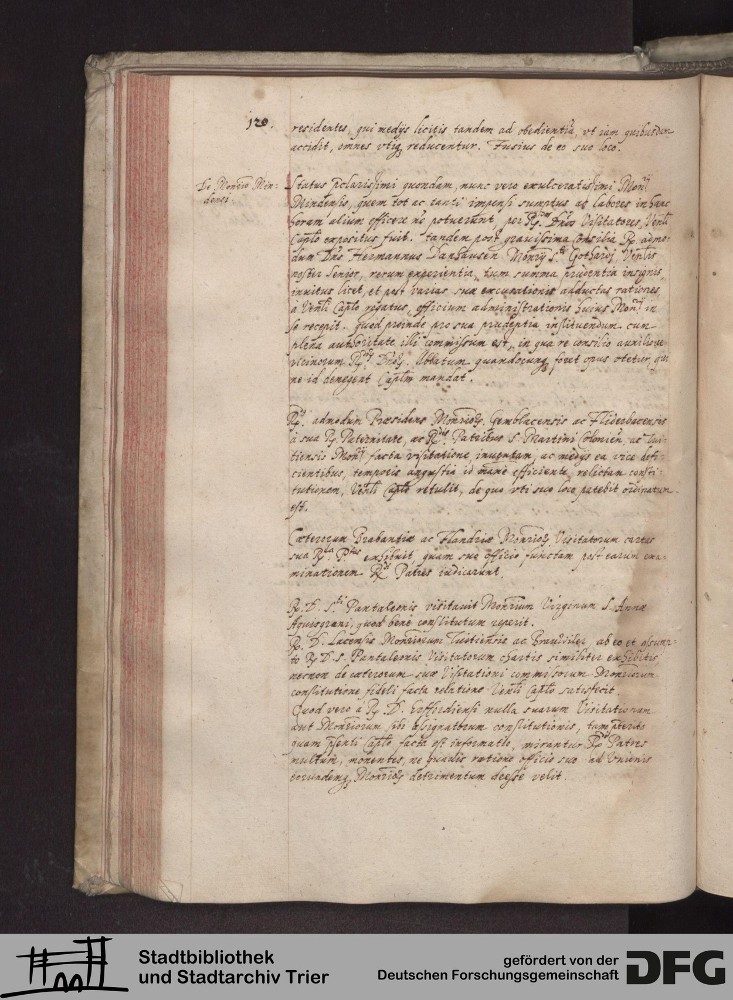 120.
residentes, qui medijs licitis tandem ad obedientiã, vt iam quibusdam
accidit, omnes vtiq3 reducentur. Fusius de eo suo loco.
De Monrio Min:
densi.
Status p̃clarissimi quondam, nunc vero exulceratissimi Monrij
Mindensis, quem tot ac tanti impensi sumptus ac labores in hanc
horam alium efficere nõ potuerunt, per Rdos Dños Visitatores, Venli
Caplo expositus fuit. tandem post grauissima consilia R. admo-
dum Dñs Hermannus Monrij S. Gothardj, Venlis
noster Senior, rerum experientia, tum summa prudentia insignis,
inuitus licet, et post varias suæ excusationis adductas rationes,
a Venli Caplo rogatus, officium administrationis huius Monrij in
se recepit. quod proinde pro sua prudentia instituendum cum
plena authoritate illi commissum est, in qua re consilio auxilioque
vicinorum Rdorũ Dñorũ Abbatum quandocunq3 foret opus vtetur, qui
ne id denegent Caplm mandat.
Rdus admodum Præsidens Monriorũ Gemblacensis ac
à sua Rda Paternitate, ac Rdis Patribus S. Martini Colonien. ac Tui-
tiensis Monrij facta visitatione, inuentam, ac medijs ea vice defi-
cientibus, temporis angustia id maxe efficiente, relictam consti-
tutionem, Venli Caplo retulit, de quo vti suo loco patebit ordinatum
est.
Cæterorum Brabantiæ ac Flandriæ Monriorũ Visitatorum cartas
sua Rda Ptas exhibuit, quam suo officio functam post earum exa-
minationem Rdi Patres iudicarunt.
R. D. S. Pantaleonis visitauit Monrium Virginum S. Annæ
quod bene constitutum reperit.
R. D. Lacensis Monriorum Tuitiensis ac ab eo et assum-
to R. D. S. Pantaleonis Visitatorum chartis similiter exhibitis
necnon de cæterorum suæ Visitationi commissorum Monriorum
constitutione fideli facta relatione Venli Caplo satisfecit.
Quod vero a R. D. nulla suarum Visitationum
aut Monriorum sibi assignatorum constitutionis, tam p̃terito
quam p̃senti Caplo facta est informatio, mirantur Rdi Patres
multum, monentes, ne quauis ratione officio suo ad Vnionis
eorundemq3 Monriorũ detrimentum deesse velit.
Stadtbibliothek
und Stadtarchiv Trier
gefördert von der
Deutschen Forschungsgemeinschaft
DFG